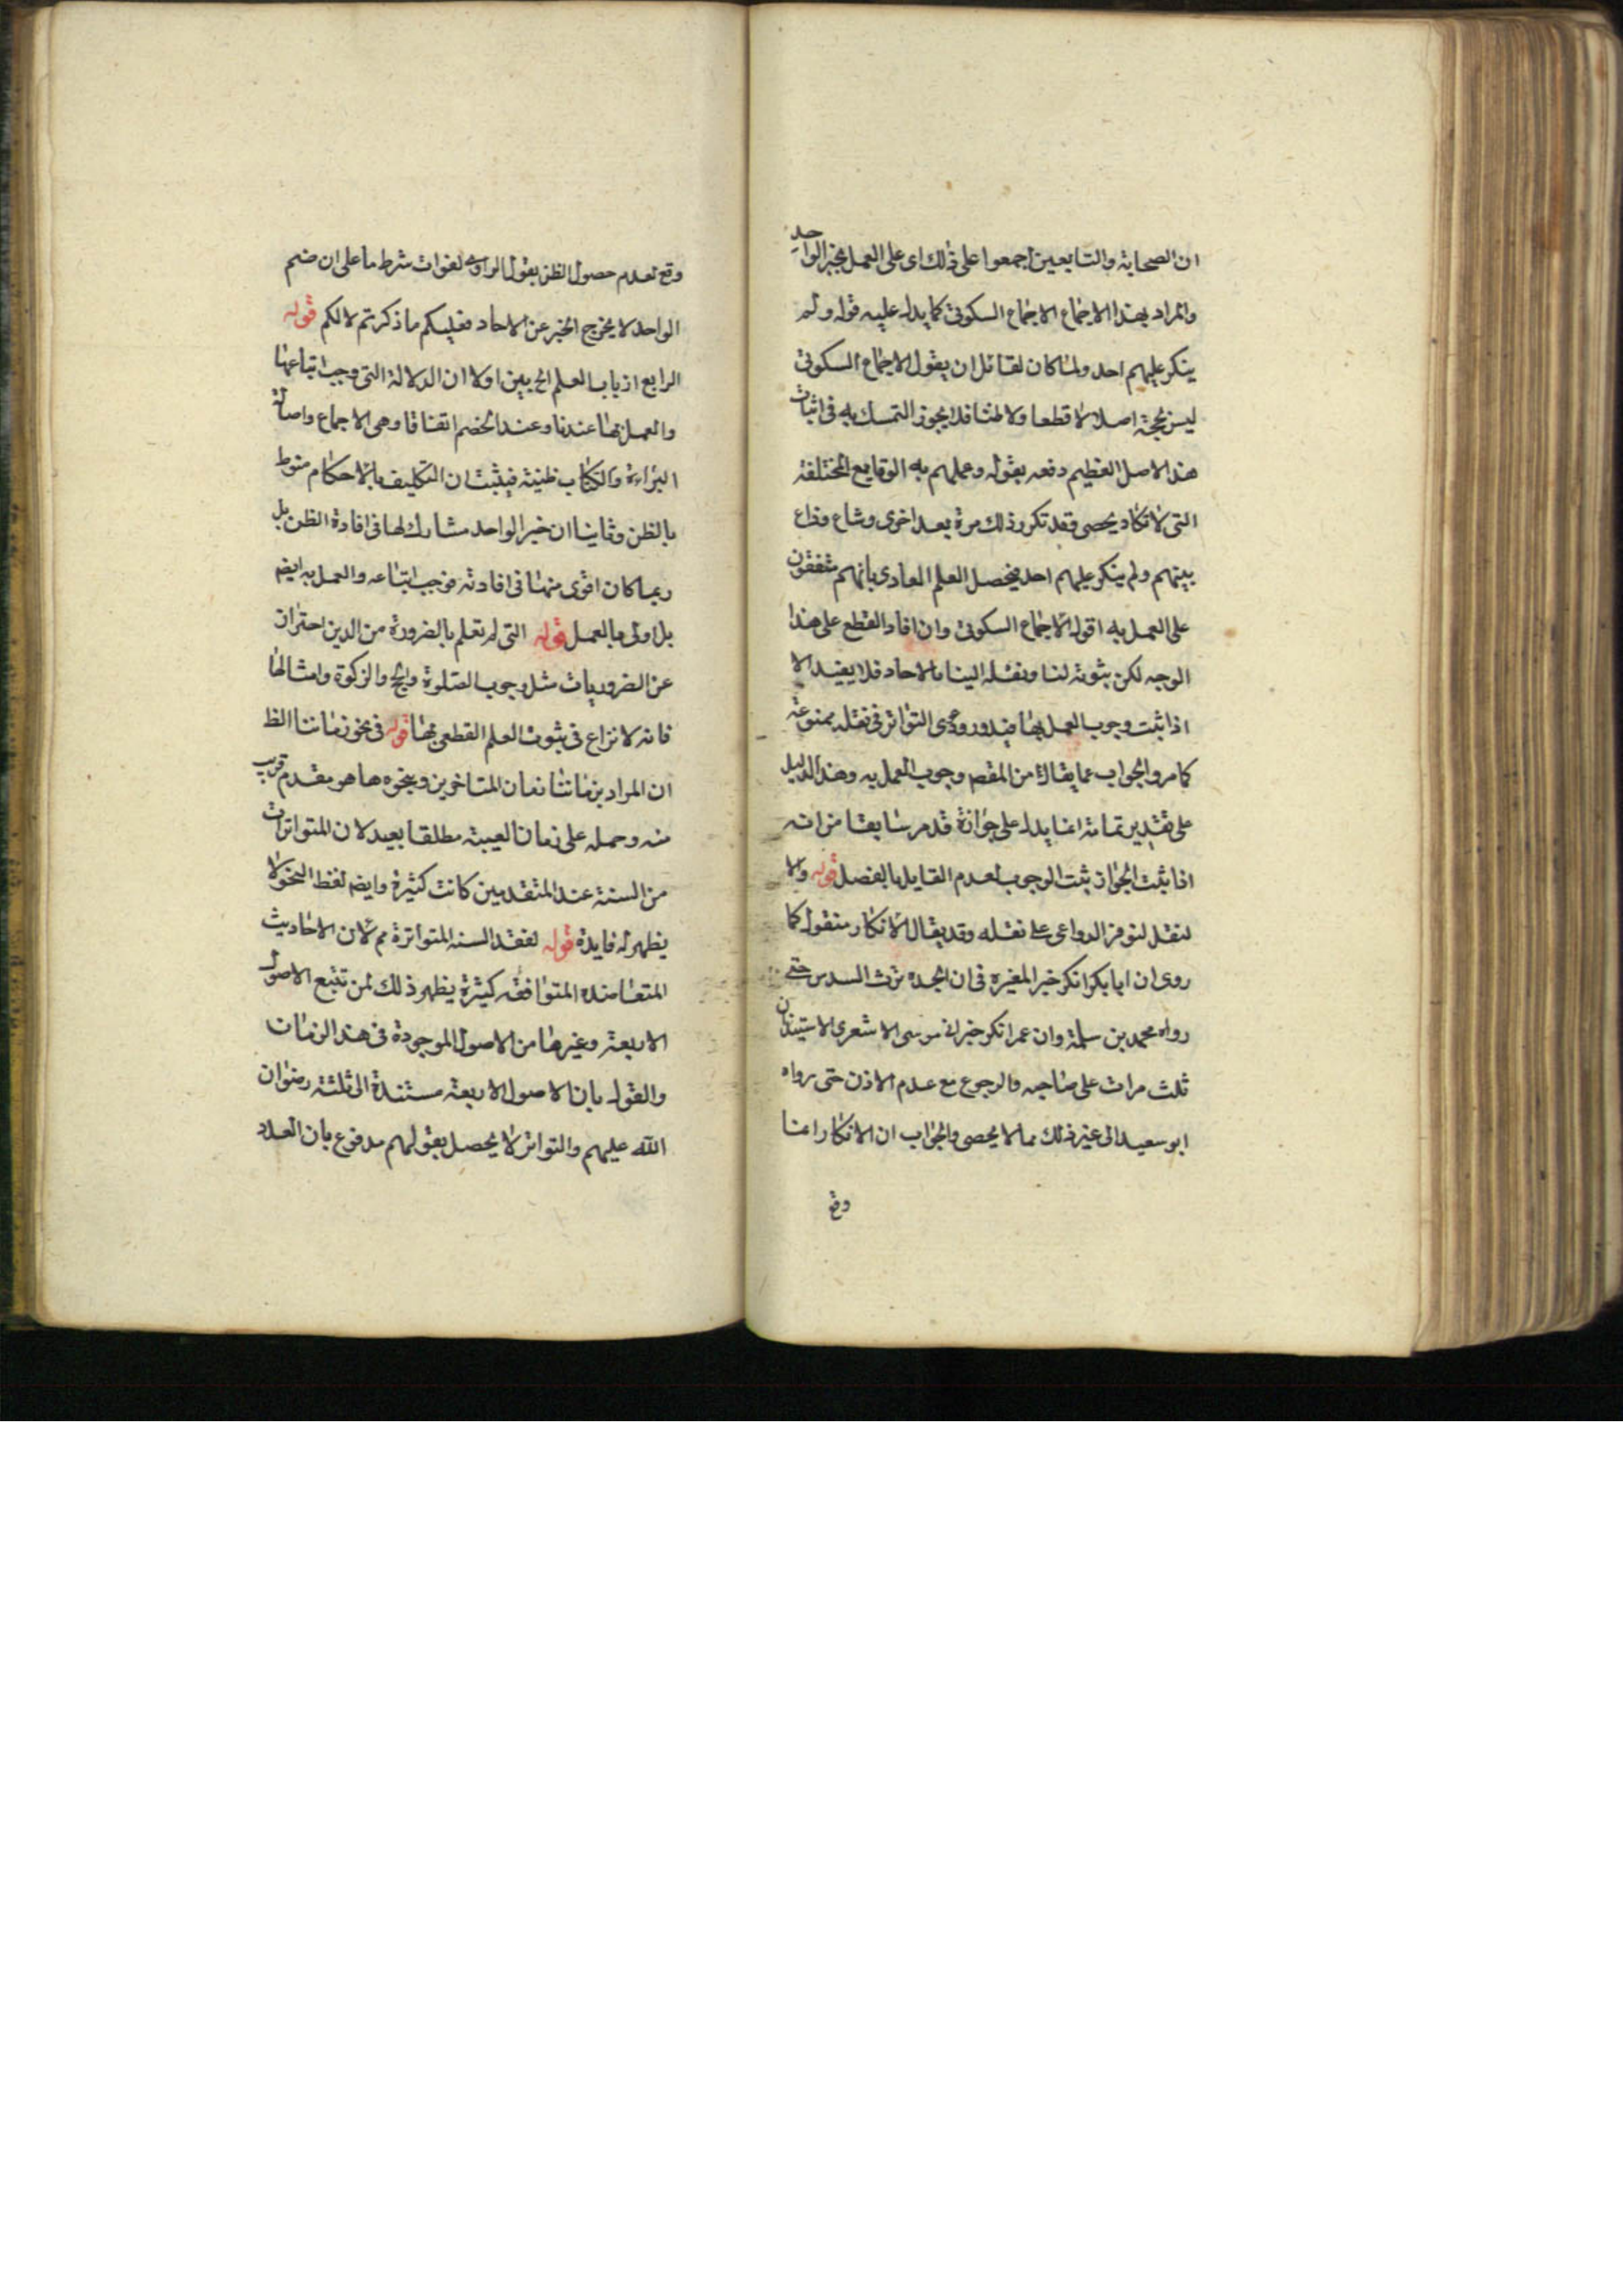 ان الصحابة والتابعين اجمعوا على ذلك اى على العمل بخبر الواحد
والمراد بهذا الاجماع الاجماع السكوتى كما يدل عليه قوله ولم
ينكر عليهم احد ولما كان لقائل ان يقول الاجماع السكوتى
ليس بحجة اصلا لا قطعا ولا ظنا فلا يجوز التمسك به فى اثبات
هذا الاصل العظيم دفعه بقوله وعملهم به الوقايع المختلفة
التى لا تكاد يحصى وقد تكرر ذلك مرة بعد اخرى وشاع وذاع
بينهم ولم ينكر عليهم احد فيحصل العلم العادى بانهم متفقون
على العمل به اقول الاجماع السكوتى وان افاد القطع على هذا
الوجه لكن ثبوته لنا ونقله الينا بالاحاد فلا يفيد الا
اذا ثبت وجوب العمل بها فيدور ودعوى التواتر فى نقله ممنوعة
كما مر والجواب عما يقال من المقصه وجوب العمل به وهذا الدليل
على تقدير تمامة انما يدل على جوازة قد مر سابقا من انه
اذا ثبت الجواز ثبت الوجوب لعدم القايل بالفصل قوله والا
لنقل لتوفر الدواعى على نقله وقد يقال الانكار منقول كما
روى ان ابا بكر انكر خبر المغيرة فى ان الجده ترث السدس حتى
رواه محمد بن سلمة وان عمر انكر خبر ابى موسى الاشعرى الاستيذان
ثلث مرات على صاحبه والرجوع مع عدم الاذن حتى رواه
ابو سعيد الى غير ذلك مما لا يحصى والجواب ان الانكار انما
وقع
وقع لعدم حصول الظن بقول الراوى لفوات شرط ما على ان ضم
الواحد لا يخرج الخبر عن الاحاد فعليكم ما ذكرتم لا لكم قوله
الرابع ان باب العلم الخ بين اولا ان الدلالة التى وجب اتباعها
والعمل بها عندنا وعند الخصم اتفاقا وهى الاجماع واصالة
البراءة والكتاب ظنية فيثبت ان التكليف بالاحكام منوط
بالظن وثانيا ان خبر الواحد مشارك لها فى افادة الظن بل
ربما كان اقوى منها فى افادته فوجب اتباعه والعمل به ايضه
بل اولى بالعمل قوله التى لم تعلم بالضرورة من الدين احتراز
عن الضروريات مثل وجوب الصلوة والحج والزكوة وامثالها
فانه لا نزاع فى ثبوت العلم القطعى بها قوله فى نحو زماننا الظ
ان المراد بزماننا زمان المتاخرين وبنحوه ما هو مقدم قريب
منه وحمله على زمان الغيبة مطلقا بعيد لان المتواترات
من السنة عند المتقدمين كانت كثيرة وايضه لفظ النحو لا
يظهر له فايدة قوله لفقد السنه المتواترة مم لان الاحاديث
المتعاضده المتوافقه كثيرة يظهر ذلك لمن تتبع الاصول
الاربعة وغيرها من الاصول الموجودة فى هذا الزمان
والقول بان الاصول الاربعة مستندة الى ثلثة رضوان
الله عليهم والتواتر لا يحصل بقولهم مدفوع بان العدد